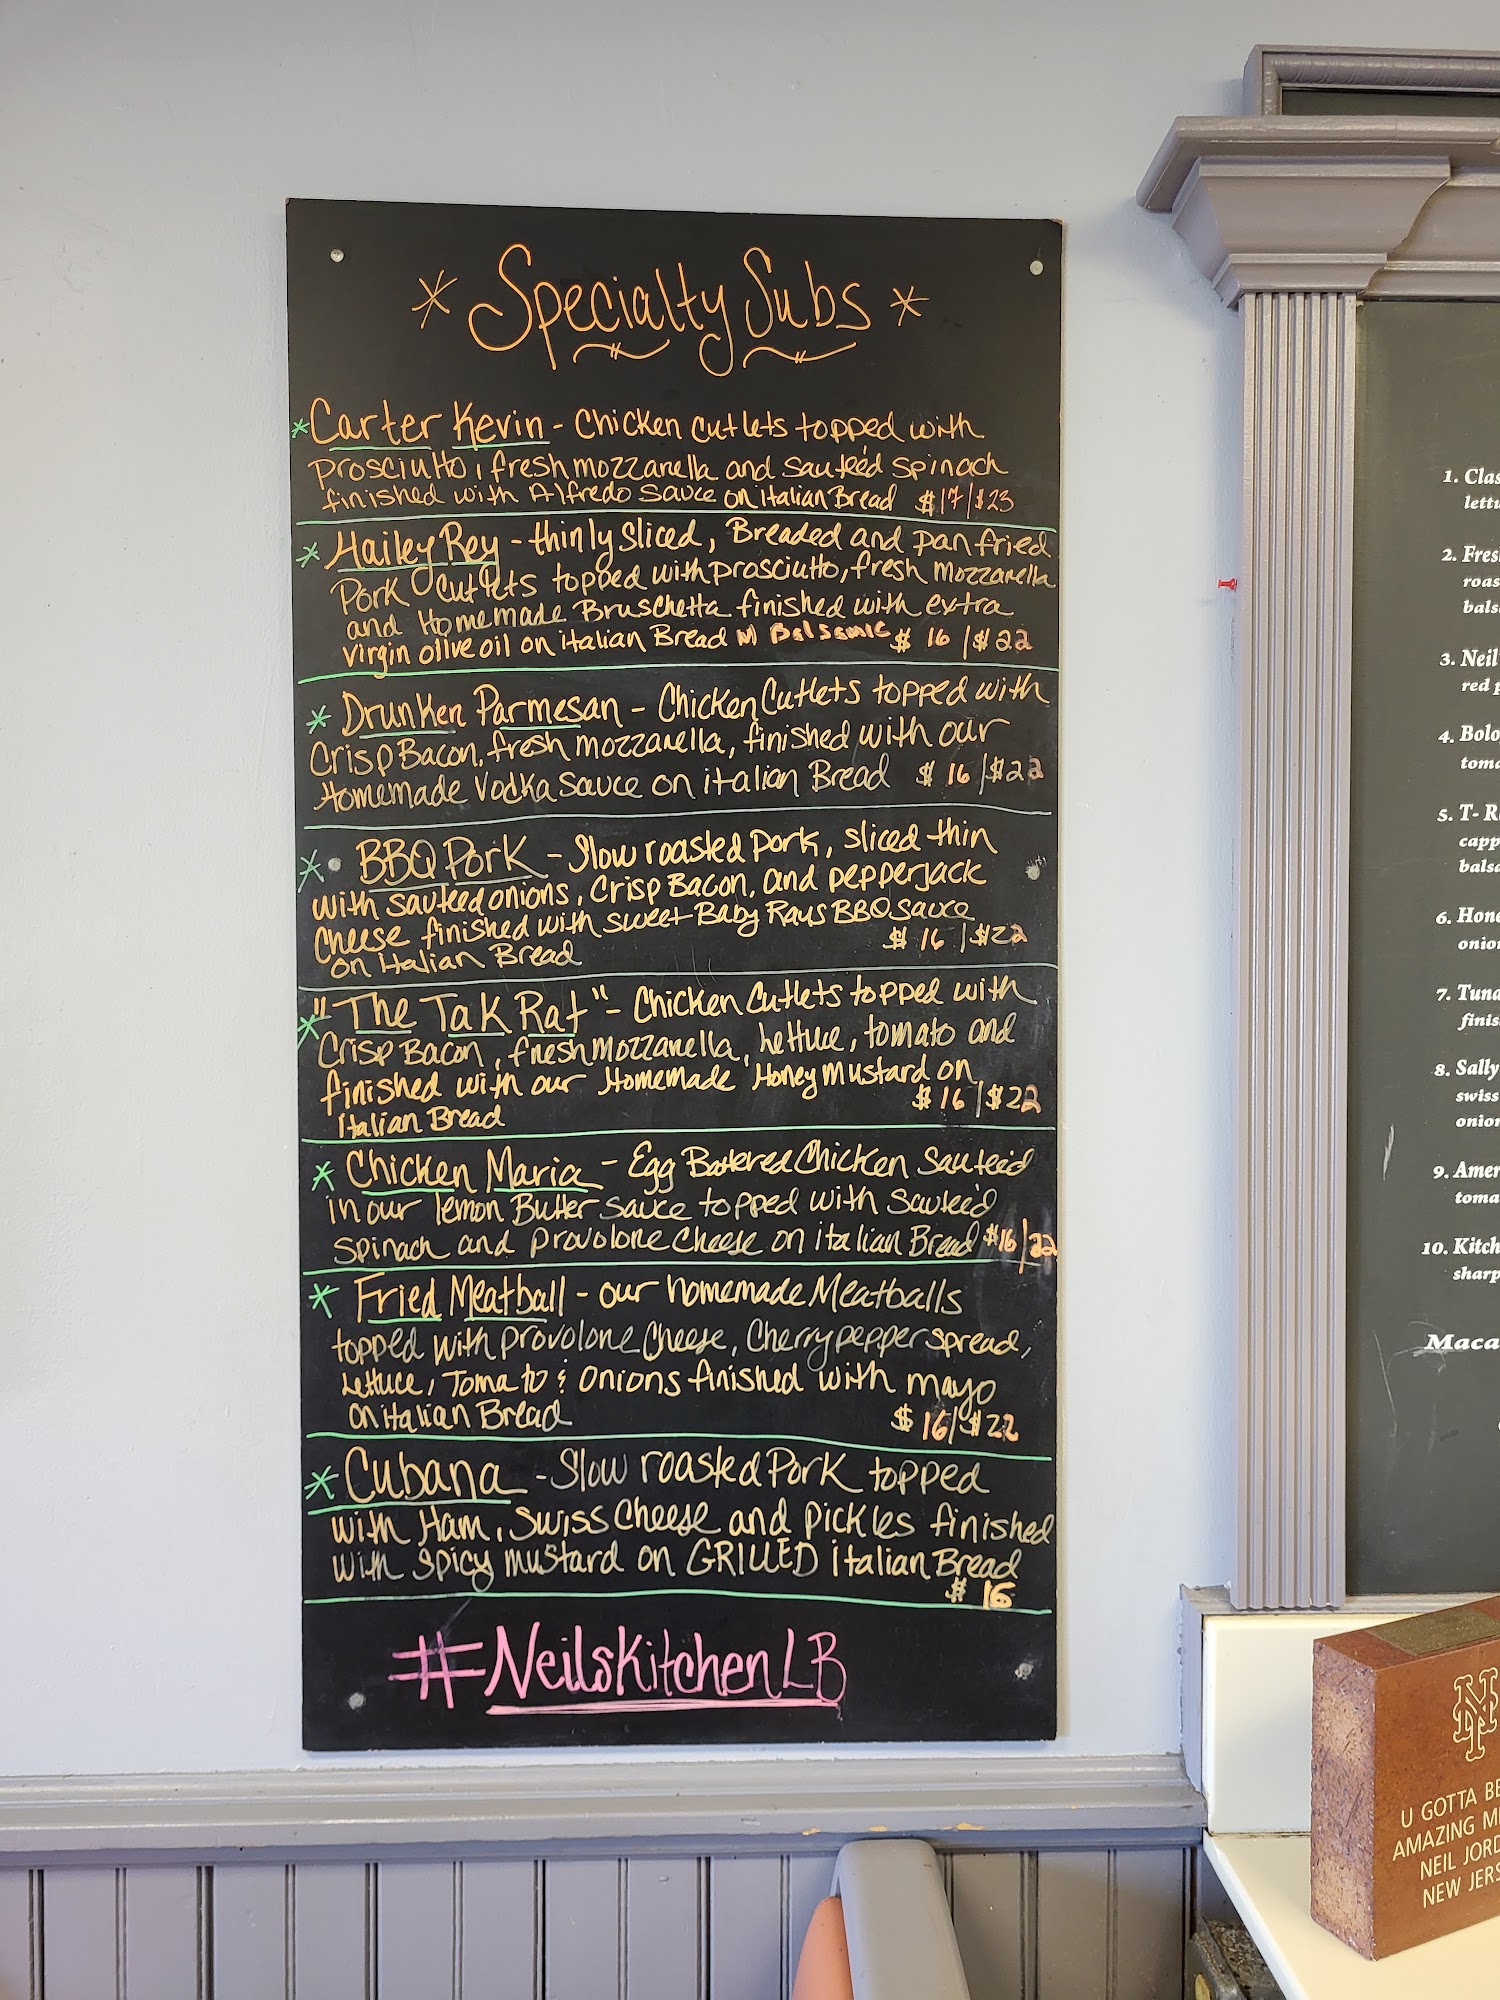 * Specialty Subs *
* Carter Kevin - Chicken cutlets topped with
prosciutto, fresh mozzarella and sauteé'd spinach
finished with Alfredo sauce on italian Bread $17/$23
* Hailey Rey - thinly sliced, Breaded and pan fried
Pork Cutlets topped with prosciutto, fresh mozzarella
and Homemade Bruschetta finished with extra
virgin olive oil on italian Bread w/ Balsamic $ 16 /$22
* Drunken Parmesan - Chicken Cutlets topped with
Crisp Bacon, fresh mozzarella, finished with our
Homemade Vodka sauce on italian Bread $ 16 /$22
* BBQ Pork - Slow roasted Pork, sliced thin
with sauteed onions, Crisp Bacon, and pepperjack
Cheese finished with sweet Baby Rays BBQ sauce
on italian Bread $ 16 /$22
* "The Tak Rat" - Chicken Cutlets topped with
Crisp Bacon, fresh mozzarella, Lettuce, tomato and
finished with our Homemade Honey mustard on
italian Bread $ 16 /$22
* Chicken Maria - Egg Battered Chicken sauteéd
in our lemon Butter sauce topped with sauteé'd
spinach and provolone Cheese on italian Bread $16/22
* Fried Meatball - our homemade Meatballs
topped with provolone Cheese, Cherry pepper spread,
Lettuce, Tomato & onions finished with mayo
on italian Bread $ 16/$22
* Cubana - Slow roasted Pork topped
with Ham, Swiss Cheese and pickles finished
with spicy mustard on GRILLED italian Bread
$ 16
#NeilsKitchenLB
1. Clas
lettu
2. Fres
roas
bals
3. Neil
red p
4. Bolo
toma
5. T-R
capp
balsa
6. Hone
onion
7. Tuna
finis
8. Sally
swiss
onion
9. Amer
toma
10. Kitch
sharp
Maca
NY
U GOTTA BE
AMAZING M
NEIL JORD
NEW JERS